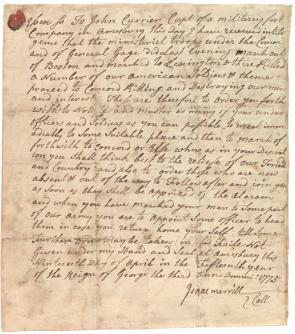 Essex ss To John Currier Capt of a military foot
Company in Amesbury this Day I have received intele
gence that the ministeriel troops under the Comm
and of General Gage did Last evening march out
of Boston and marched to Lexington & there Killed
a Number of our american Soldiers & thence
proceed to Concord Killing and Destroying our men
and interest: These are therefore to order you forth
with to and muster as many of your under
officers and Soldiers as you can possible to meet imm
ediatly to Some Suitable place and then to march of
forthwith to Concord or Else where as in your Descret
ion you Shall think best to the reliefe of our Frinds
and Country and also to order those who are now
absent & out of the way to Follow after and ioin you
as Soon as they shall be apprized of the Alaram
and when you have marched your men to Some part
of our army you are to appoint Some officer to head
them in case you return home your Self till Some
Further Order may be taken: in this Faile Not
Given under my Hand and Seal at Amesbury this
Ninteenth Day of April in the Fifteenth year
of the Reign of George the third Anno Domini: 1775
Isaac Merrill
Coll